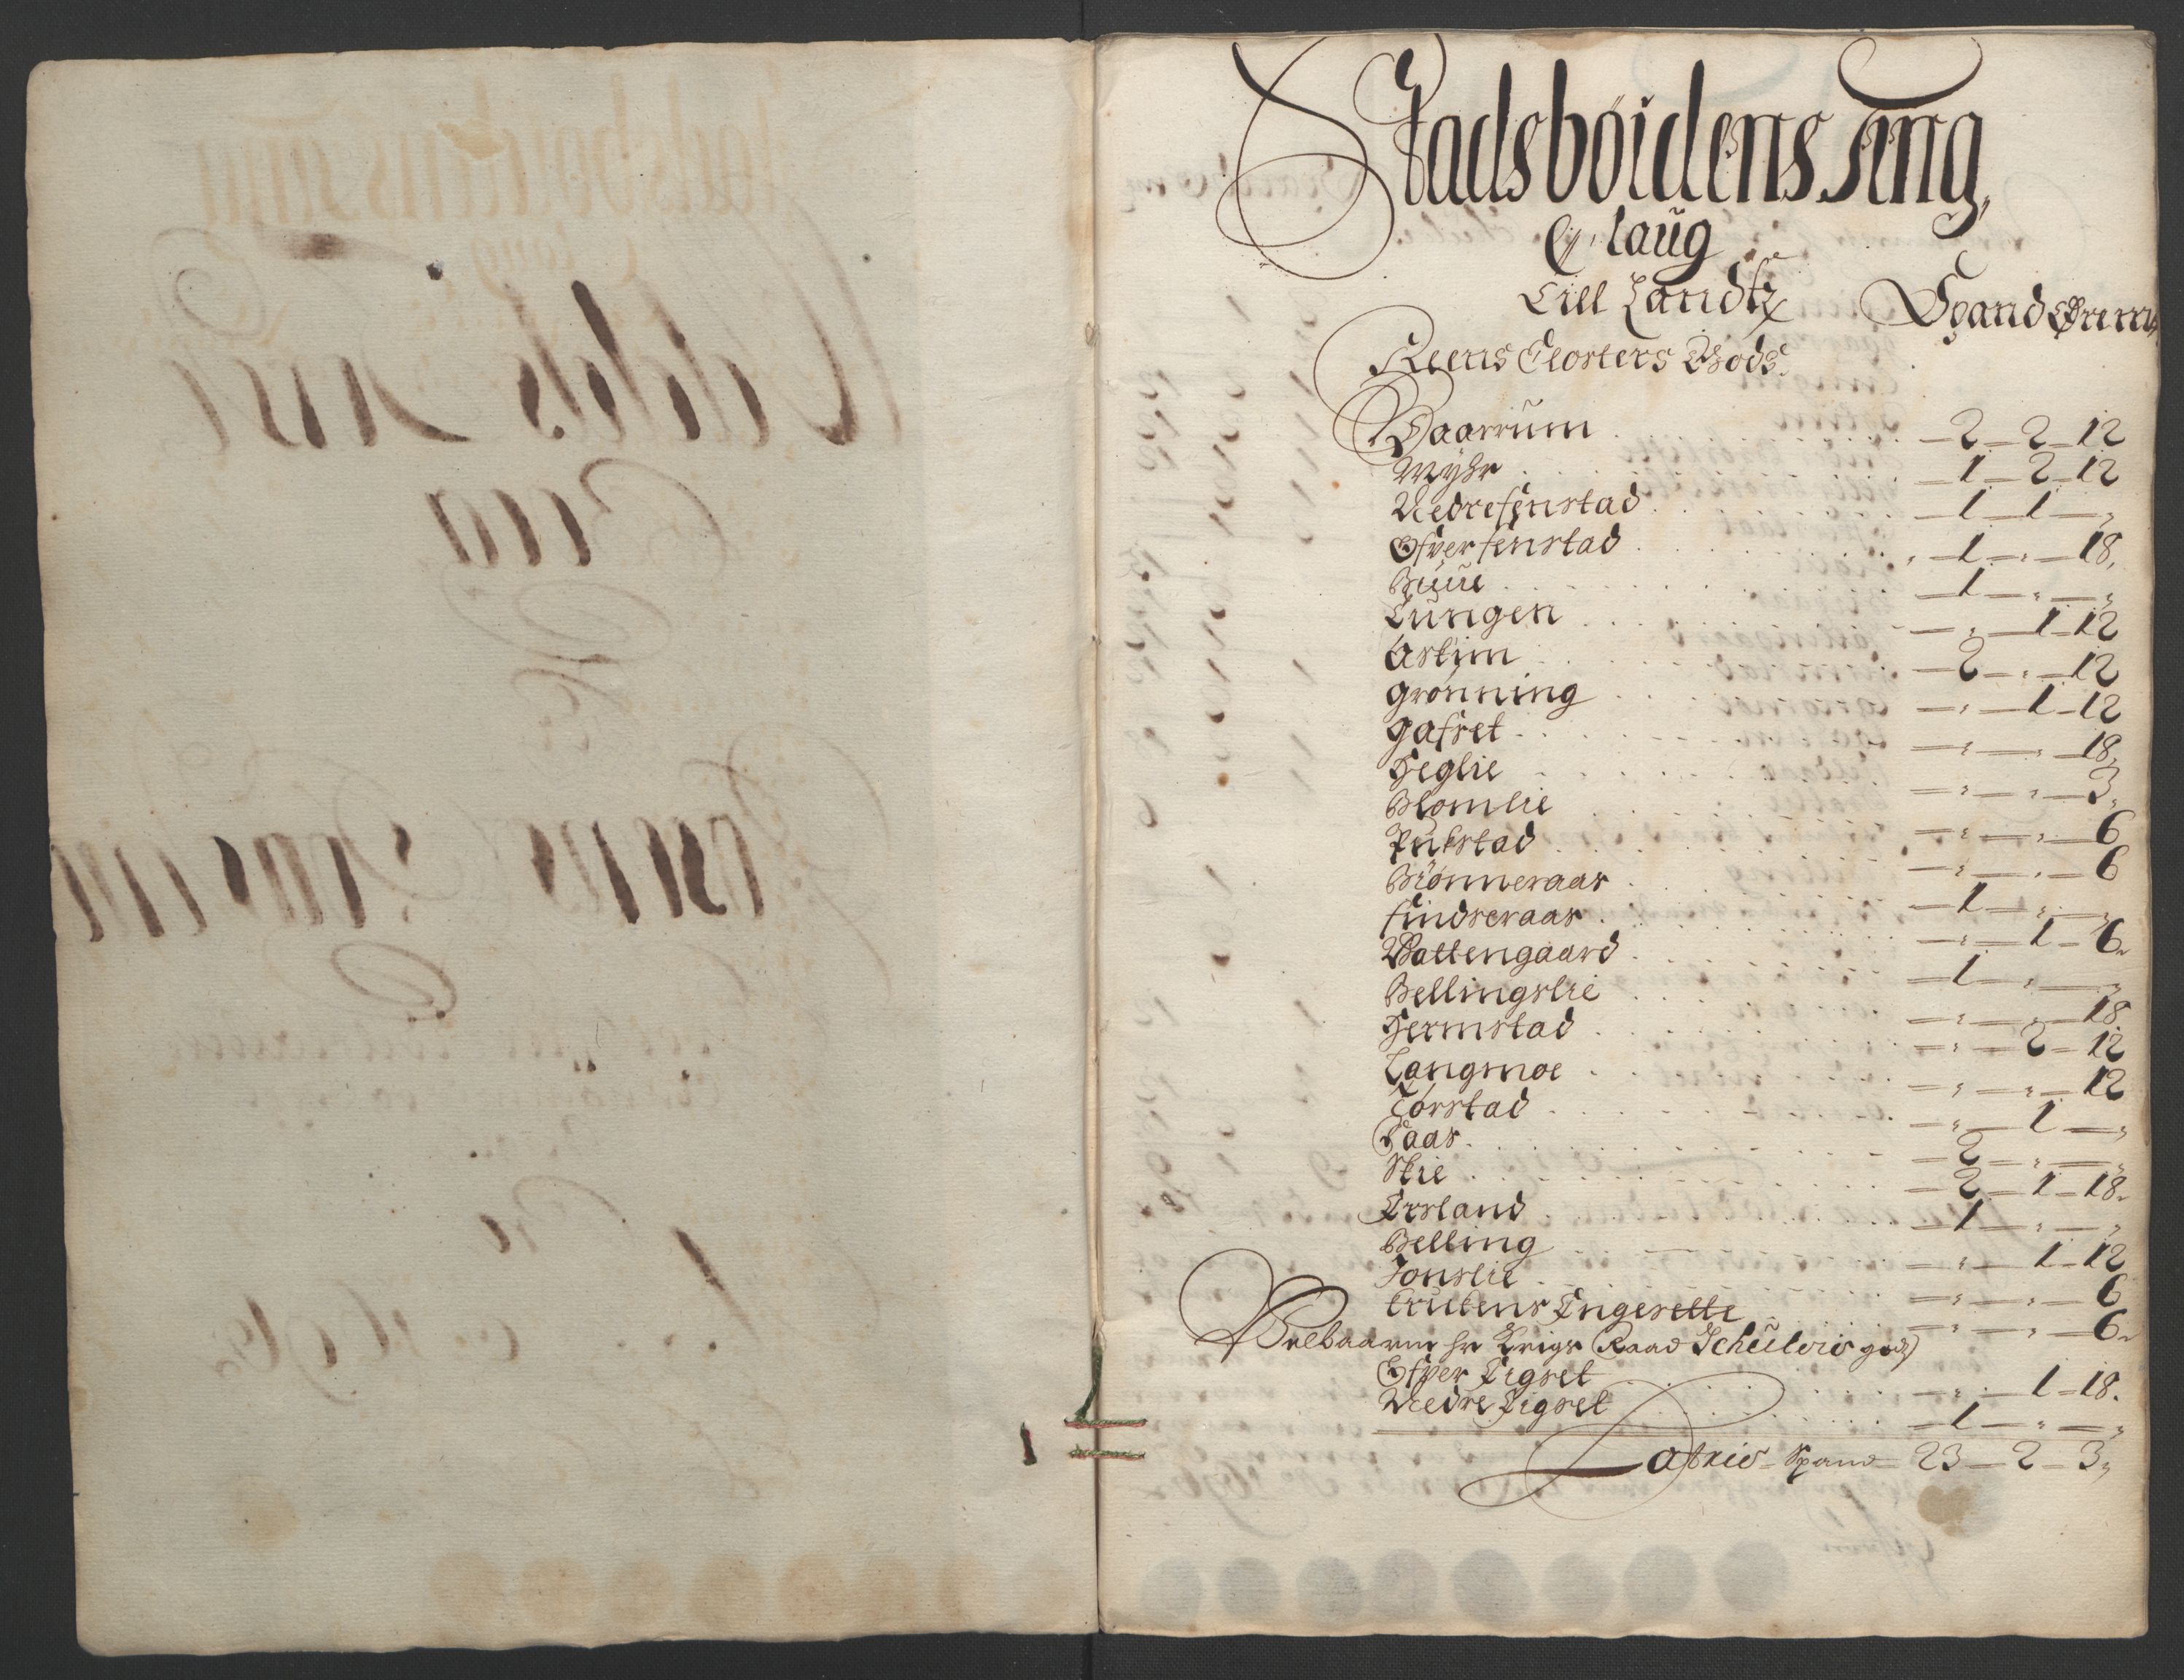 Stadsböidens Ting,
laug
Till Landtz
Spand Ører mk
Reens Closters Gods.
Baarrum - 2 - 2 - 12
Myhr - 1 - 2 - 12
Nedrefenstad - 1 - 1 - „
Ofverfenstad - 1 - „ - 18.
Buue - 1 - „ - „
Tungen - „ - 1 - 12
Askim - 2 - „ - 12
Grønning - „ - 1 - 12
Gafset - „ - „ - 18.
Heglie - „ - „ - 3.
Blomlie - „ - „ - 6
Pukstad - „ - „ - 6
Biønneraas - 1 - „ - „
findseraas - „ - 1 - 6.
Wattengaard - 1 - „ - „
Bellingslie - „ - „ - 18
Hermstad - „ - 2 - 12
Langmoe - „ - „ - 12
Torstad - „ - 1 - „
Faas - 2 - „ - „
Skie - 2 - 1 - 18.
Irsland - 1 - „ - „
Belling - „ - 1 - 12
Jonslie - „ - „ - 6
Engesette - „ - „ - 6.
Velbaarne hr Krigs Raad Schüldis gods
Ofver Tigset - „ - 1 - 18.
Nedre Tigset - 1 - „ - „
Latris Spand 23 - 2 - 3.